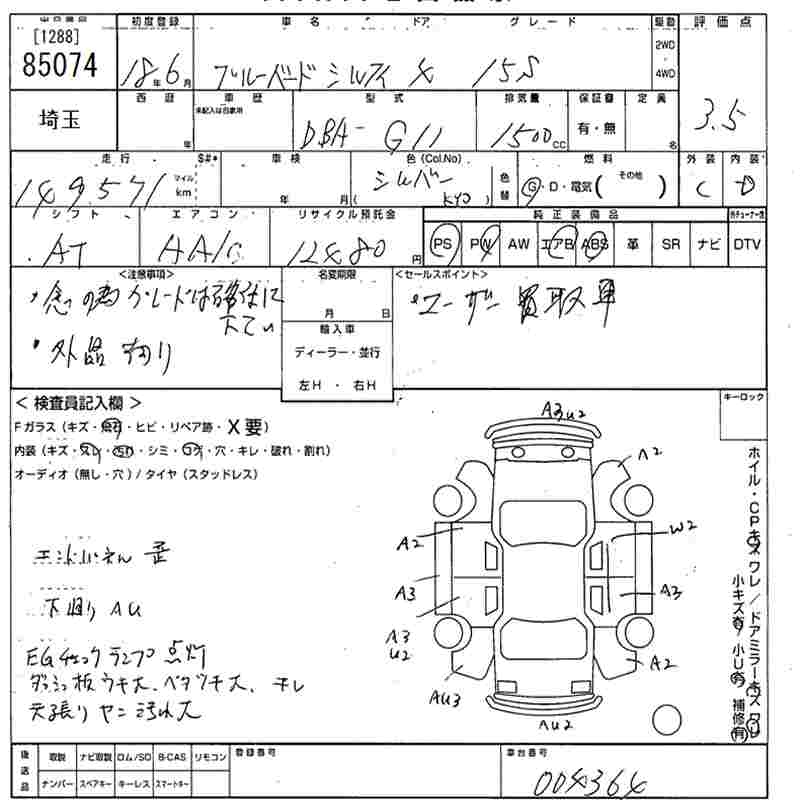 出品番号 初度登録 車名 ドア グレード 駆動 評価点
[1288]
85074
18年6月 ブルーバード シルフィ 4 15S
2WD
4WD
埼玉
西暦 年
車歴
未記入は自家用
型式
DBA- G11
排気量
1500cc
保証書
有・無
定員
名
3.5
走行 $#*
149571
マイル
km
車検
年 月
色(Col.No)
シルバー
( KY0 )
色替
燃料
G・D・電気( その他 )
外装
C
内装
D
シフト
AT
エアコン
AA/C
リサイクル預託金
12480円
純正装備品
PS PW AW エアB ABS 革 SR ナビ DTV
<注意事項>
・念の為グレードは確実に
・外品有り
名変期限
月 日
輸入車
ディーラー・並行
左H・右H
<セールスポイント>
・ユーザー買取車
<検査員記入欄>
キーロック
Fガラス(キズ・飛石・ヒビ・リペア跡・X要)
内装(キズ・スレ・汚れ・シミ・コゲ・穴・キレ・破れ・割れ)
オーディオ(無し・穴)/タイヤ(スタッドレス)
エンドパネル 歪
下廻り AU
EGチェックランプ 点灯
ダッシュ板ウキ大、ベタツキ大、キレ
天張り ヤニ汚れ大
A3 U2
A2
A2
W2
A3
A3
A3
U2
A2
AU3
AU2
ホイル・CPキズワレ/ドアミラーキズワレ
小キズ有/小U有/補修有
後送品
取説 ナビ取説 ロム/SD B-CAS リモコン
ナンバー スペアキー キーレス スマートキー
登録番号
車台番号
004364